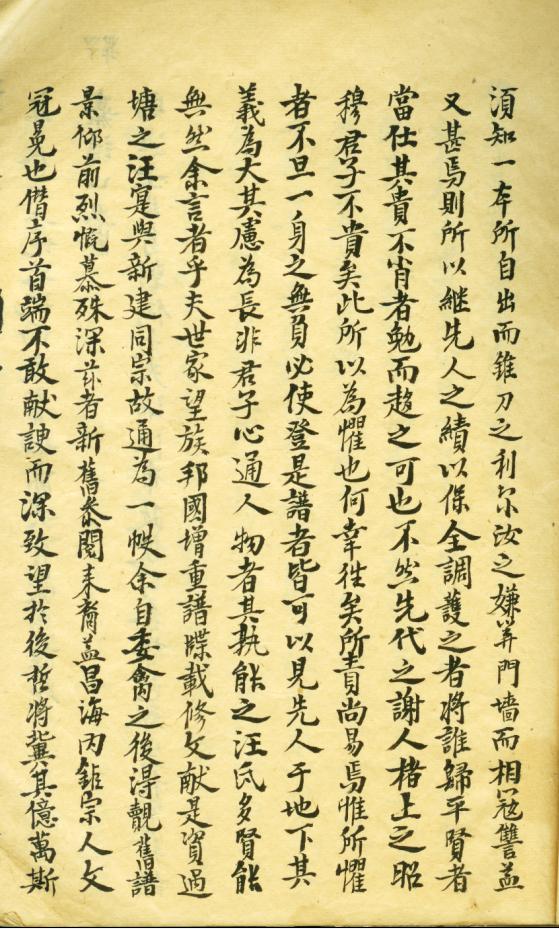 須知一本所自出而錐刀之利尔汝之嫌筭門墻而相冦讐益
又甚焉則所以継先人之績以保全調護之者將誰歸乎賢者
當仕其貴不肖者勉而趍之可也不然先代之謝人楮上之昭
穆君子不貴矣此所以為懼也何幸徃矣所責尚易焉惟所懼
者不旦一身之無負必使登是譜者皆可以見先人于地下其
義為大其慮為長非君子心通人物者其孰能之汪氏多賢能
無然余言者乎夫世家望族邦國增重譜牒載修文献是資過
塘之汪寔與新建同宗故通為一帙余自委禽之後淂覿舊譜
景仰前烈慨慕殊深茲者新舊叅閱耒裔益昌海內鉅宗人文
冠冕也僣序首端不敢献諛而深致望於後哲將冀其億萬斯